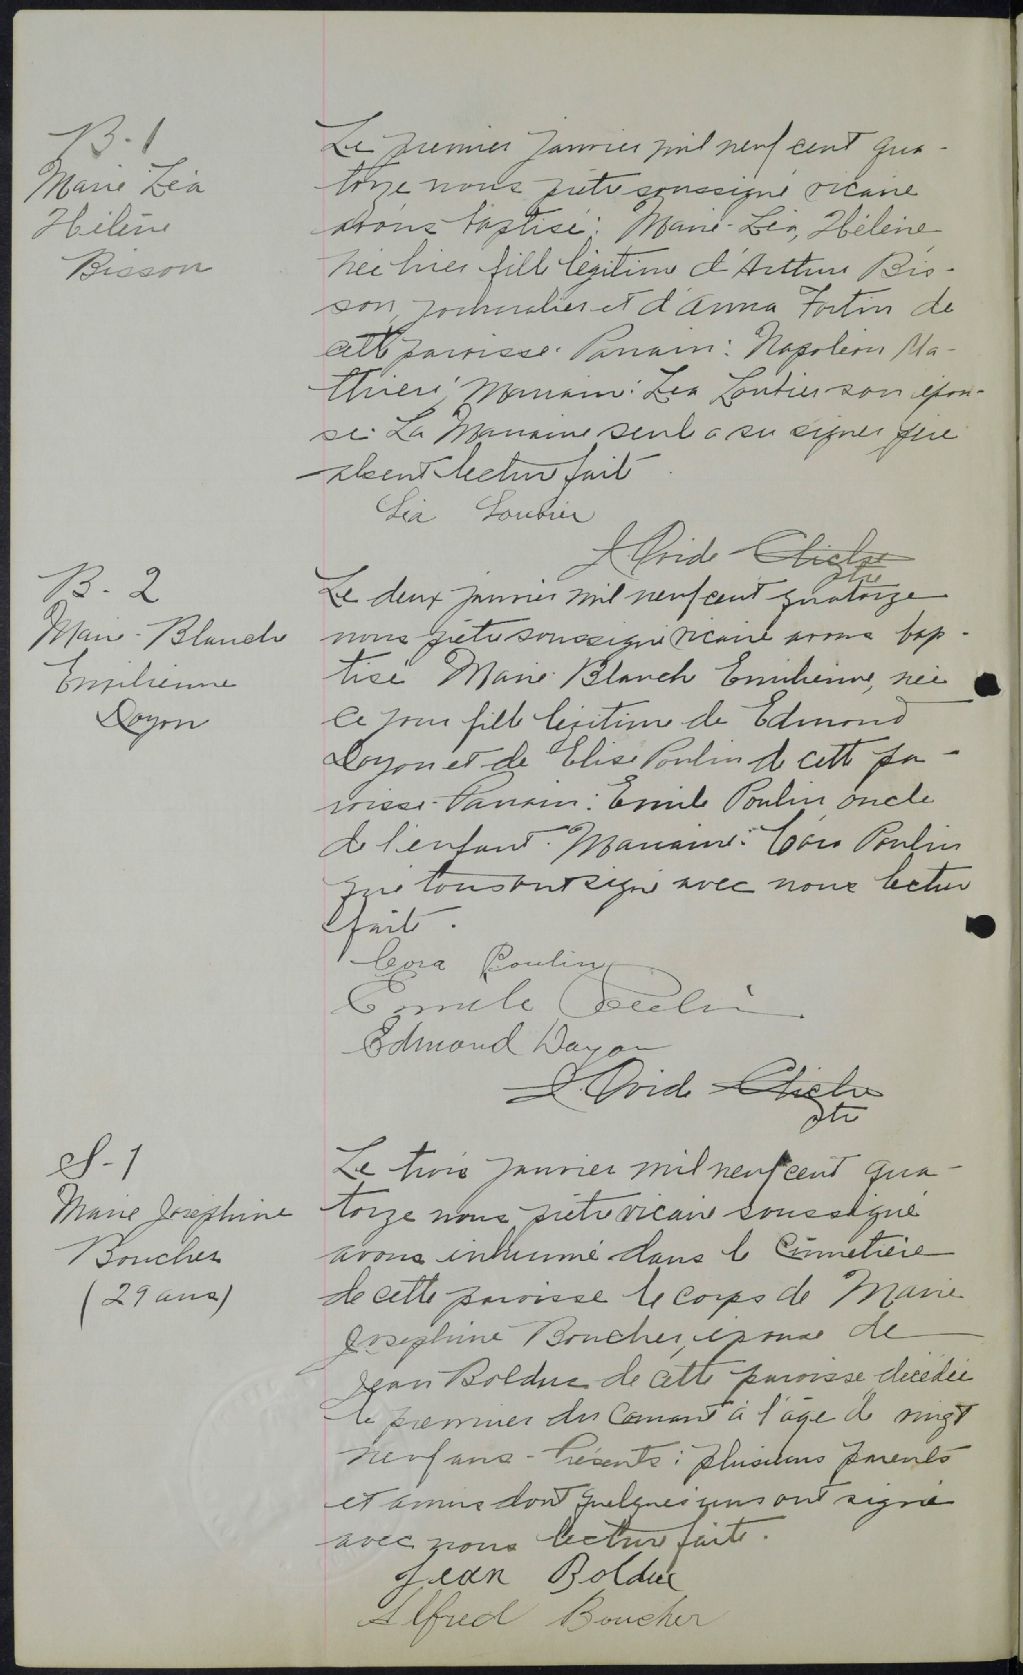 B-1
Marie Léa
Hélène
Bisson
Le premier janvier mil neuf cent qua-
torze nous prêtre soussigné vicaire
avons baptisé: Marie-Léa, Hélène
née hier fille légitime d'Arthur Bis-
son, journalier et d'Anna Fortin de
cette paroisse. Parrain: Napoléon Ma-
thieu; Marraine: Léa Loubier son épou-
se. La Marraine seule a su signer père
absent lecture faite
Léa Loubier
J Ovide Cliche
ptre
B-2
Marie-Blanche
Emilienne
Doyon
Le deux janvier mil neuf cent quatorze
nous prêtre soussigné vicaire avons bap-
tisé Marie Blanche Emilienne, née
ce jour fille légitime de Edmond
Doyon et de Elise Poulin de cette pa-
roisse. Parrain: Emile Poulin oncle
de l'enfant. Marraine: Cora Poulin
qui tous ont signé avec nous lecture
faite.
Cora Poulin
Emile Poulin
Edmond Doyon
J Ovide Cliche
ptre
S-1
Marie Joséphine
Boucher
(29 ans)
Le trois janvier mil neuf cent qua-
torze nous prêtre vicaire soussigné
avons inhumé dans le cimetière
de cette paroisse le corps de Marie
Joséphine Boucher, épouse de
Jean Bolduc de cette paroisse décédée
le premier du courant à l'âge de vingt
neuf ans - Présents: plusieurs parents
et amis dont quelques uns ont signé
avec nous lecture faite.
Jean Bolduc
Alfred Boucher